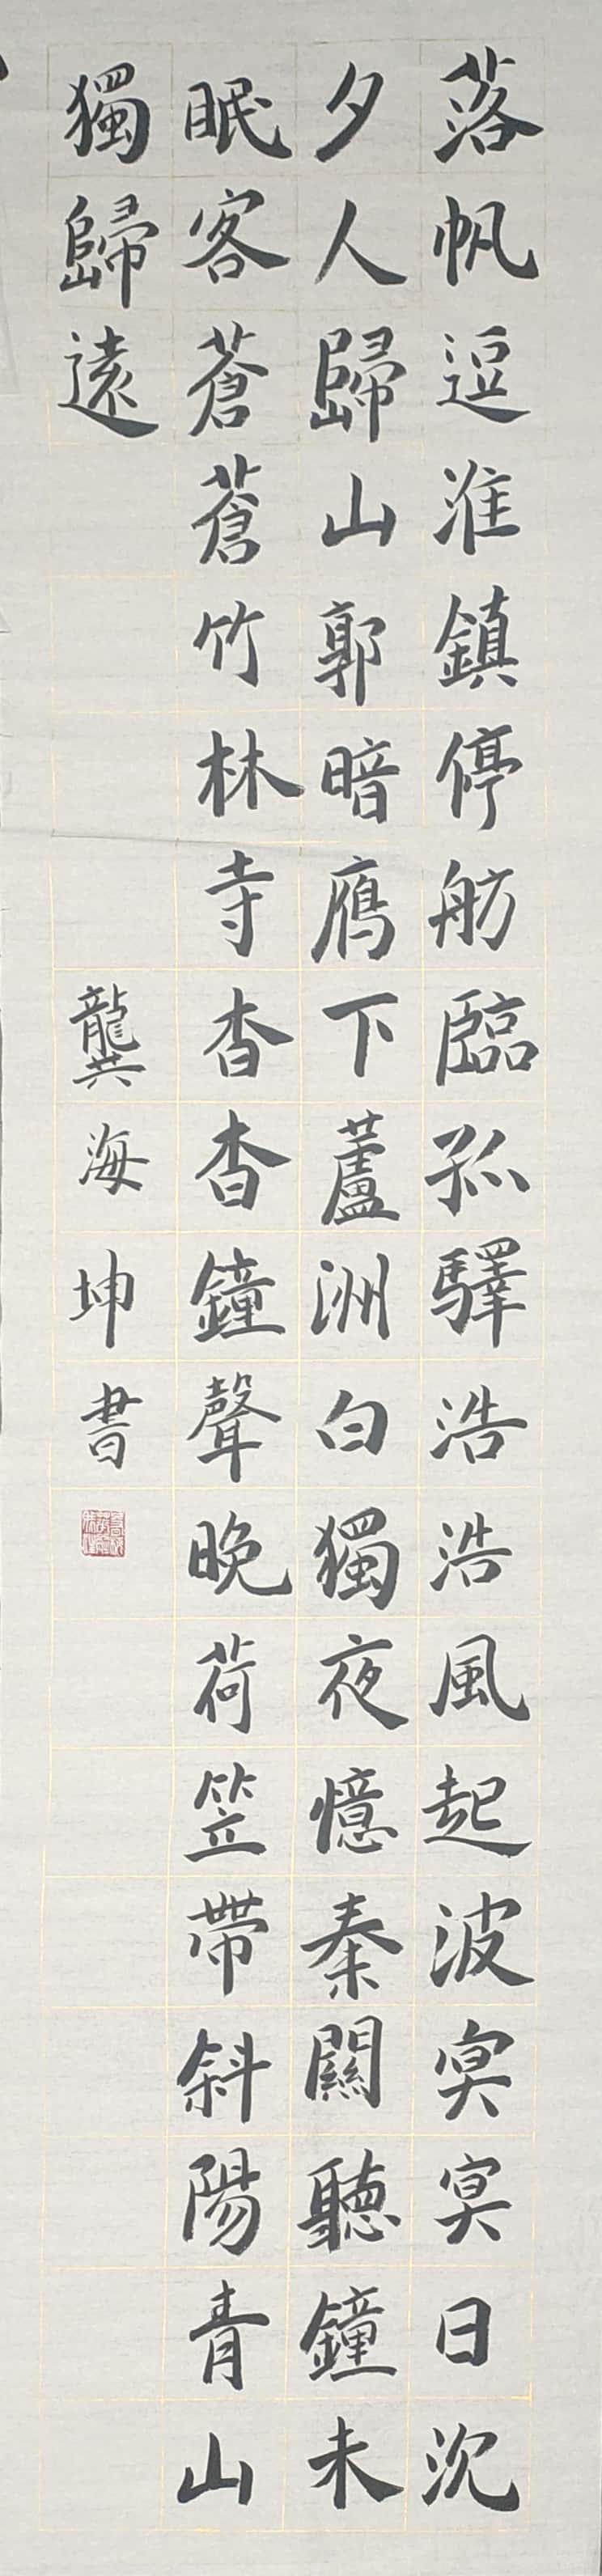 落帆逗淮鎮停舫臨孤驛浩浩風起波冥冥日沈
夕人歸山郭暗鴈下蘆洲白獨夜憶秦關聽鐘未
眠客蒼蒼竹林寺杳杳鐘聲晚荷笠帶斜陽青山
獨歸遠
龔海坤書